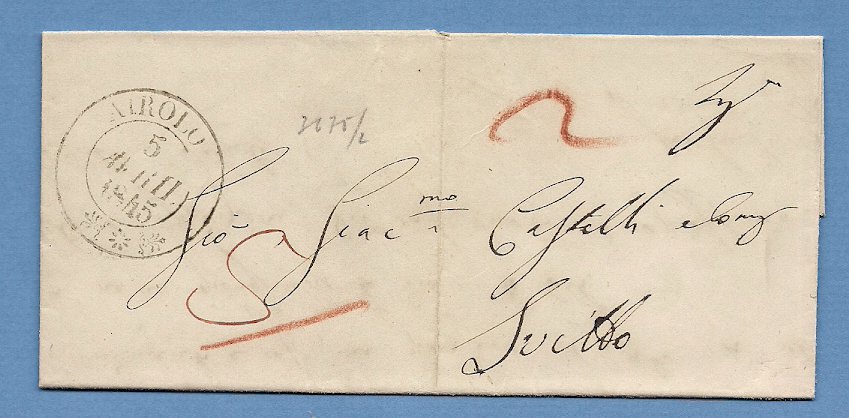 AIROLO
5
AVRIL
1845
Gio Giac mo Castelli e Comp
Svitto